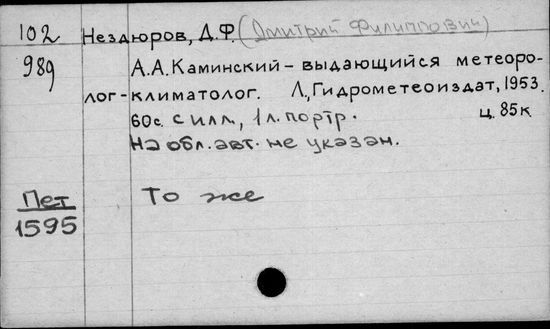 102 Нездюров, Д.Ф. (Дмитрий Филиппович)
989 А.А. Каминский – выдающийся метеоро-
лог-климатолог. Л., Гидрометеоиздат, 1953.
60с. с илл., 1 л. портр. ц. 85к.
На обл. авт. не указан.
Пет То же
1595